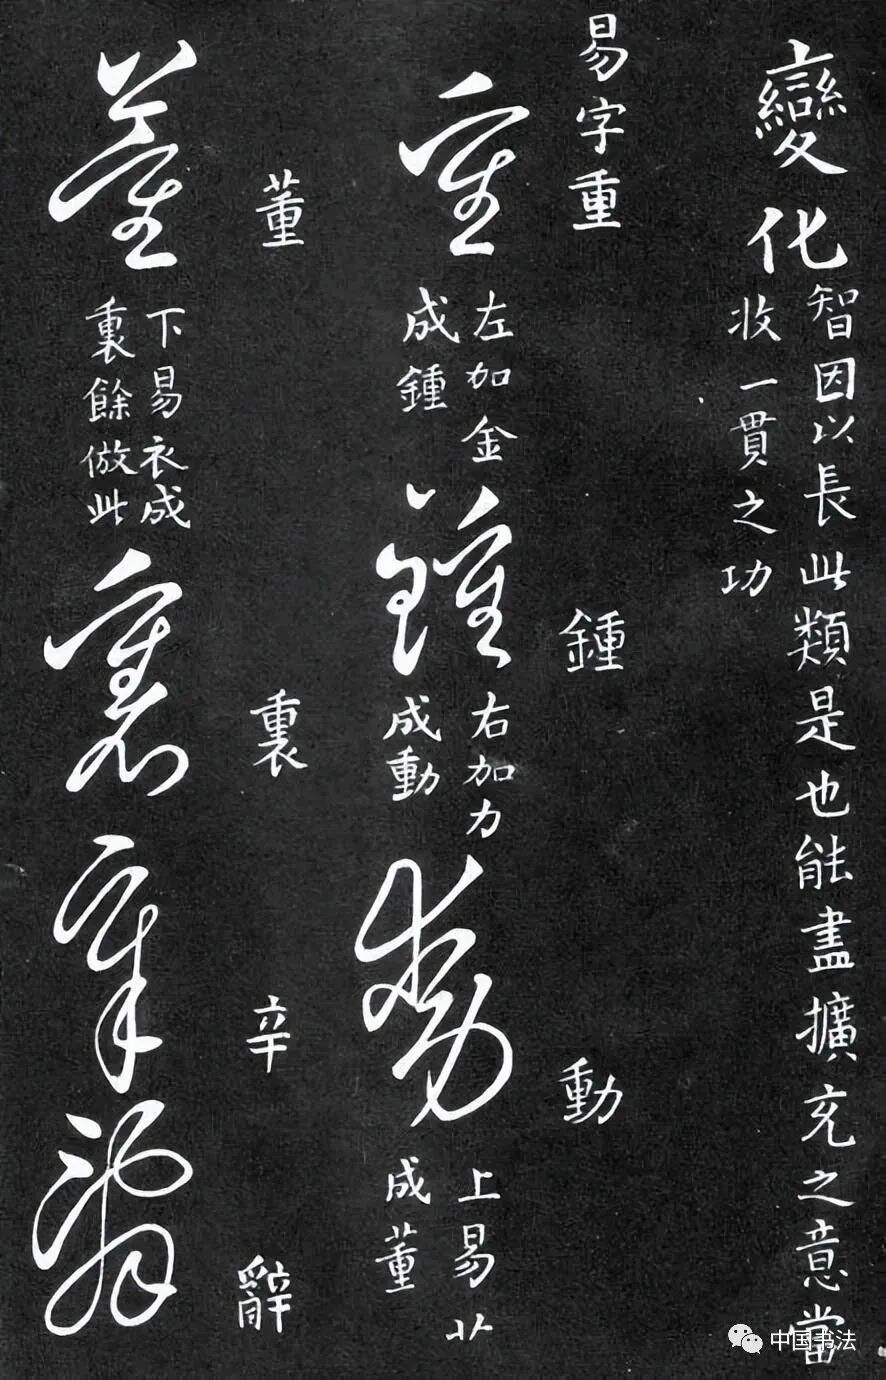 變化
智因以長此類是也能盡擴充之意當
收一貫之功
易字重
鍾
動
重
左加金
成鍾
鍾
右加力
成動
動
上易艹
成董
董
裏
辛
辭
董
下易衣成
裏餘倣此
裏
辛
辭
中国书法